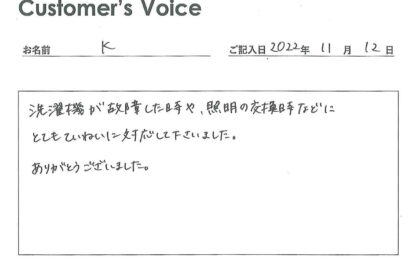 Customer's Voice
お名前 K ご記入日 2022年 11月 12日
洗濯機が故障した時や、照明の交換時などに
とてもていねいに対応して下さいました。
ありがとうございました。